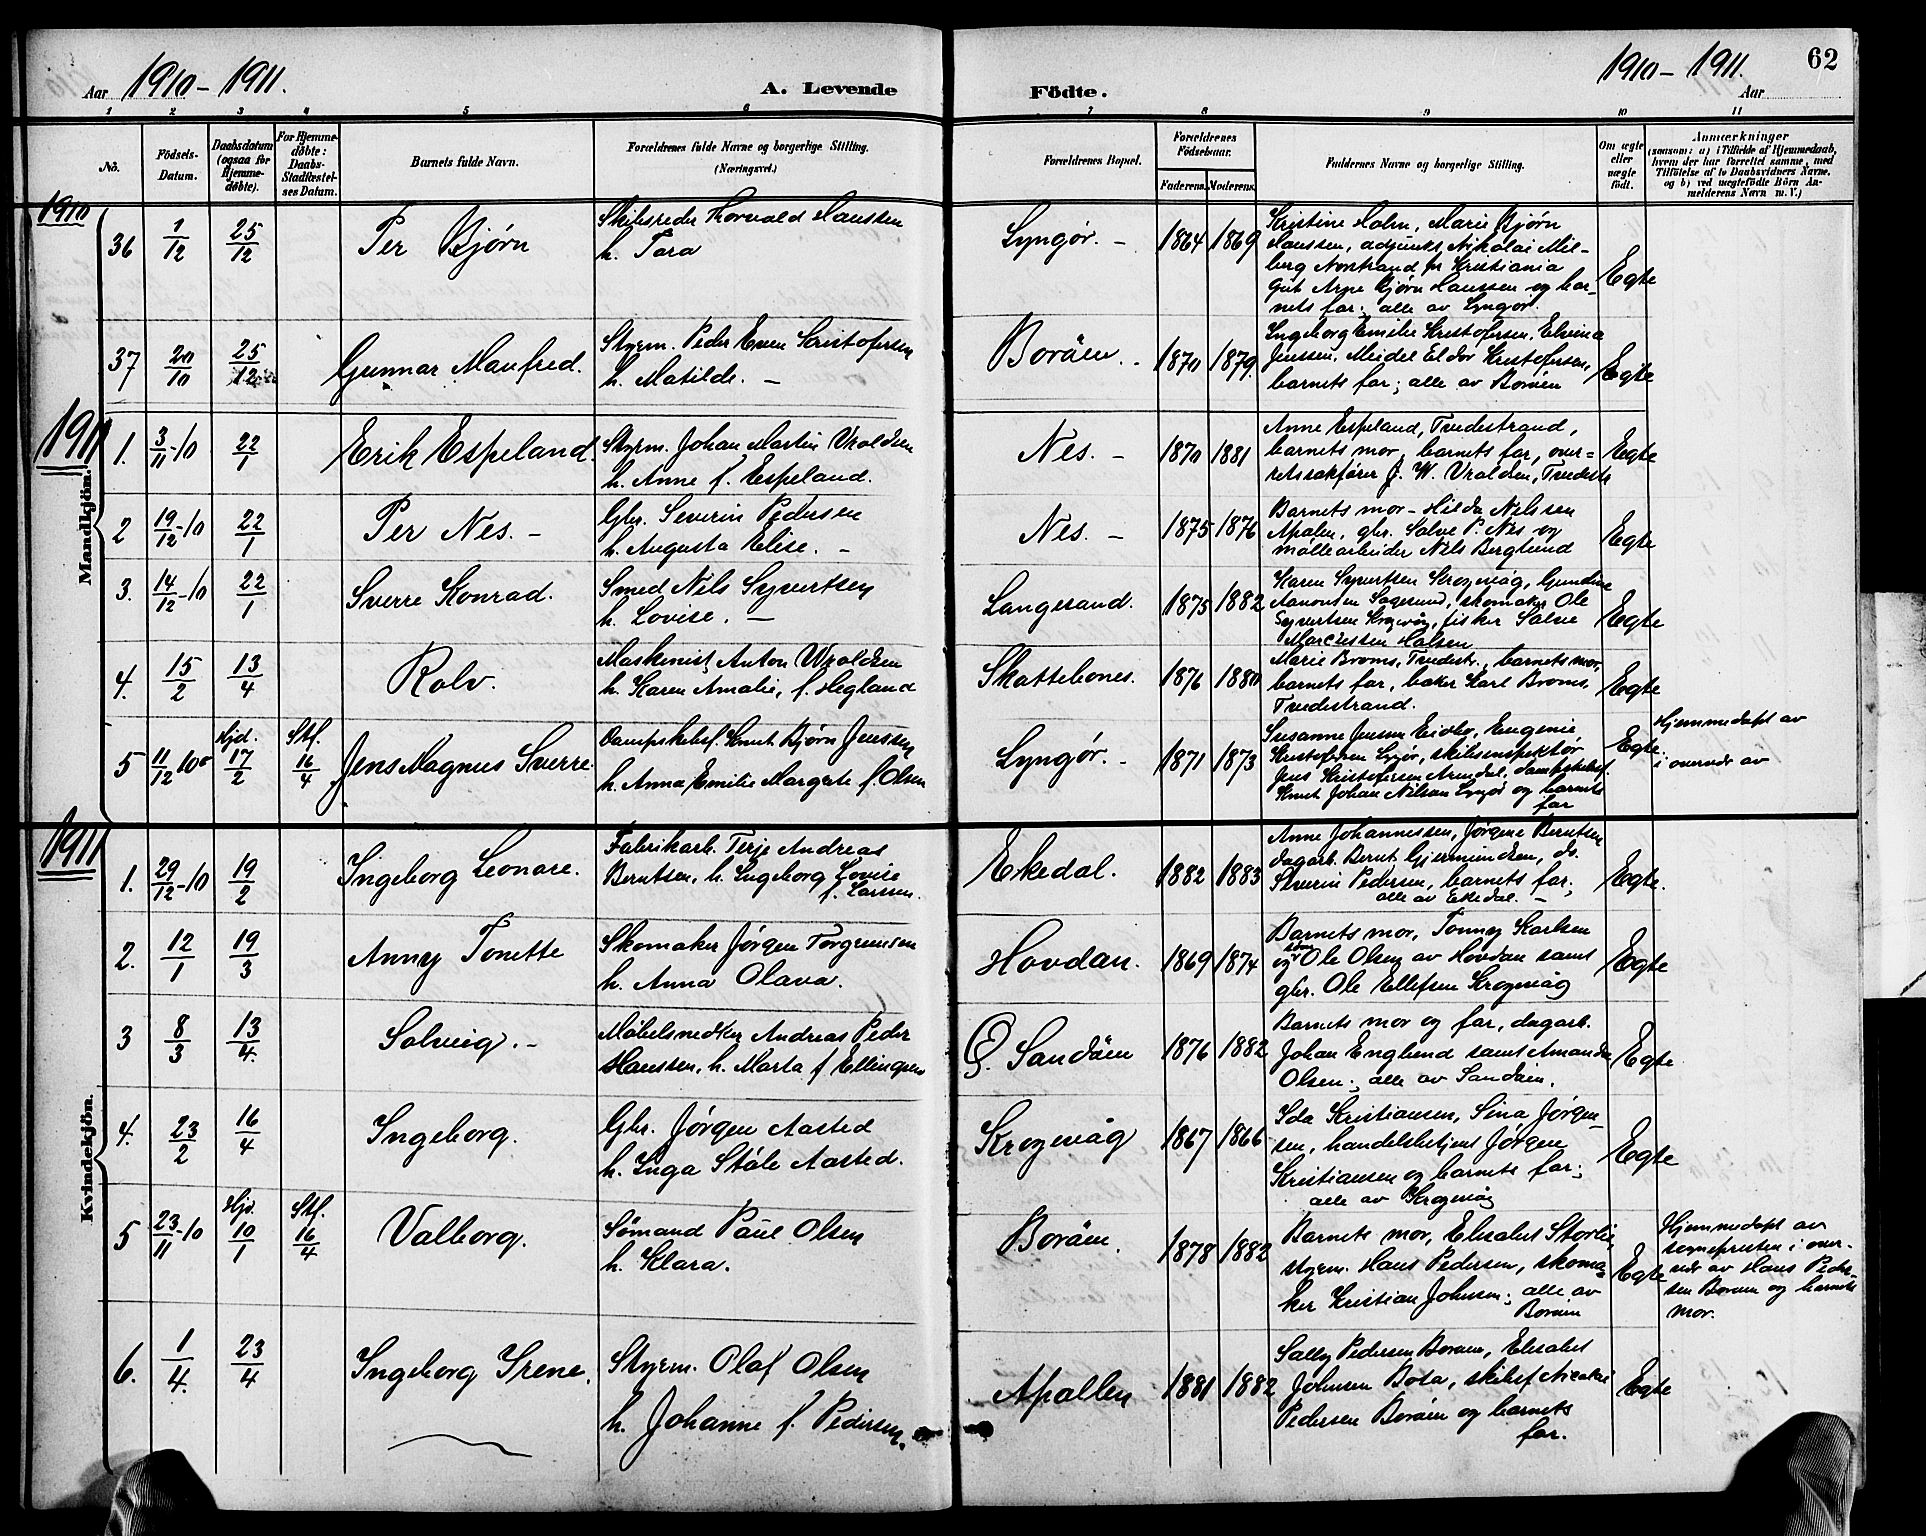 Aar 1910 - 1911.
A. Levende Fødte.
1910 - 1911. Aar
62
1 2 3 4 5 6 7 8 9 10 11
No.
Fødsels-Datum.
Daabsdatum (ogsaa for Hjemme-døbte).
For Hjemme-døbte: Daabs-Stadfæstel-ses Datum.
Barnets fulde Navn.
Forældrenes fulde Navne og borgerlige Stilling. (Næringsvei.)
Forældrenes Bopæl.
Forældrenes Fødselsaar.
Faderens. Moderens.
Faddernes Navne og borgerlige Stilling.
Om ægte eller uægte født.
Anmærkninger
(saasom: a) i Tilfælde af Hjemmedaab, hvem der har forrettet samme, med Tilføielse af to Daabsvidners Navne, og b) ved uægtefødte Børn An-melderens Navn m. V.)
Mandkjøn.
1910
36 1/12 25/12 Per Bjørn
Skibsreder Thorvald Hanssen
h. Tora
Lyngør. - 1864 1869
Kristine Holm, Marie Bjørn
Hanssen, adjunkt Nikolai Mil-
berg Norstrand pr Kristiania
Gut Arne Bjørn Hanssen og bar-
nets far; alle av Lyngør.
Egte
37 20/10 25/12 Gunnar Manfred.
Styrm. Peder Even Kristofersen
h. Matilde. -
Borøen. - 1870 1879.
Ingeborg Emilie Kristofersen, Elvina
Jenssen, Meidel Eldor Kristofersen,
barnets far; alle av Borøen
Egte
1911
1. 3/11-10 22/1 Erik Espeland.
Styrm. Johan Martin Vraldsen
h. Anne f. Espeland.
Nes. - 1870 1881
Anne Espeland, Tvedestrand,
barnets mor, barnets far, over-
retssakfører J. W. Vralsen, Tvedestr
Egte
2 19/12-10 22/1 Per Nes. -
Gbr. Severin Pedersen
h. Augusta Elise. -
Nes. - 1875 1876
Barnets mor - Hilda Nilssen
Apalen, gbr. Salve P. Nes og
møllearbeider Nils Berglund
Egte
3. 14/12-10 22/1 Sverre Konrad.
Smed Nils Syvertsen
h. Lovise. -
Langesand. 1875 1882
Karen Syvertsen Krogevåg, Gundine
Aanonsen Sagesund, skomaker Ole
Syvertsen Krogevåg, fisker Salve
Marcussen Holsen
Egte
4. 15/2 13/4 Rolv.
Maskinist Anton Vraldsen
h. Karen Amalie, f. Hegland
Skattebones. 1876 1880
Marie Broms, Tvedestr., barnets mor,
barnets far, baker Karl Broms,
Tvedestrand.
Egte
5 11/12 10 Hjd. 17/2 Stf. 16/4 Jens Magnus Sverre.
Dampskibsf. Knut Bjørn Jenssen
h. Anna Emilie Margrete f. Olsen
Lyngør. - 1871 1873
Susanne Jensen Eidbo, Eugenie
Kristofersen Lyngør, skibsinspektør
Jens Kristofersen Arendal, dampskibsf.
Knut Johan Nilsen Lyngør og barnets
far
Egte.
Hjemmedøpt av
i overvær av
Kvindekjøn.
1911
1. 29/12-10 19/2 Ingeborg Leonore.
Fabrikarb. Terje Andreas
Berntsen, h. Ingeborg Lovise
f. Larsen.
Ekedal. 1882 1883
Anne Johannessen, Jørgine Berntsen
dagarb. Bernt Gjermundsen, do.
Severin Pedersen, barnets far;
alle av Ekedal. -
Egte.
2. 12/1 19/3 Anny Tonette
Skomaker Jørgen Torgrimsen
h. Anna Olava.
Hovdan. 1869 1874
Barnets mor, Tonny Karlsen
og Ole Olsen av Hovdan samt
gbr. Ole Ellefsen Krogevåg
Egte
3 8/3 13/4. Solveig. -
Møbelsnedker Andreas Peder
Hanssen, h. Marta f. Ellingsen
Ø. Sandøen 1876 1882
Barnets mor og far, dagarb.
Johan Englund samt Amanda
Olsen; alle av Sandøen.
Egte
4. 23/2 16/4 Ingeborg.
Gbr. Jørgen Aasted
h. Inga Ståle Aasted.
Krogevåg 1867 1866
Ida Kristiansen, Sina Jørgen-
sen, handelsbetjent Jørgen
Kristiansen og barnets far;
alle av Krogevåg
Egte
5 23/11-10 Hjd. 10/1 Stf. 16/4 Valborg.
Sømand Paul Olsen
h. Klara.
Borøen. 1878 1882
Barnets mor, Elisabet Storli,
styrm. Hans Pedersen, skoma-
ker Kristian Johnsen; alle av
Borøen
Egte
Hjemmedøpt av
sognepresten i over-
vær av Hans Peder-
sen Borøen og barnets
mor.
6. 1/4. 23/4 Ingeborg Irene.
Styrm. Olaf Olsen
h. Johanne f. Pedersen.
Apallen 1881 1882
Sally Pedersen Borøen, Elisabet
Johnsen Bota, skibsf Nicolai
Pedersen Borøen og barnets
far.
Egte